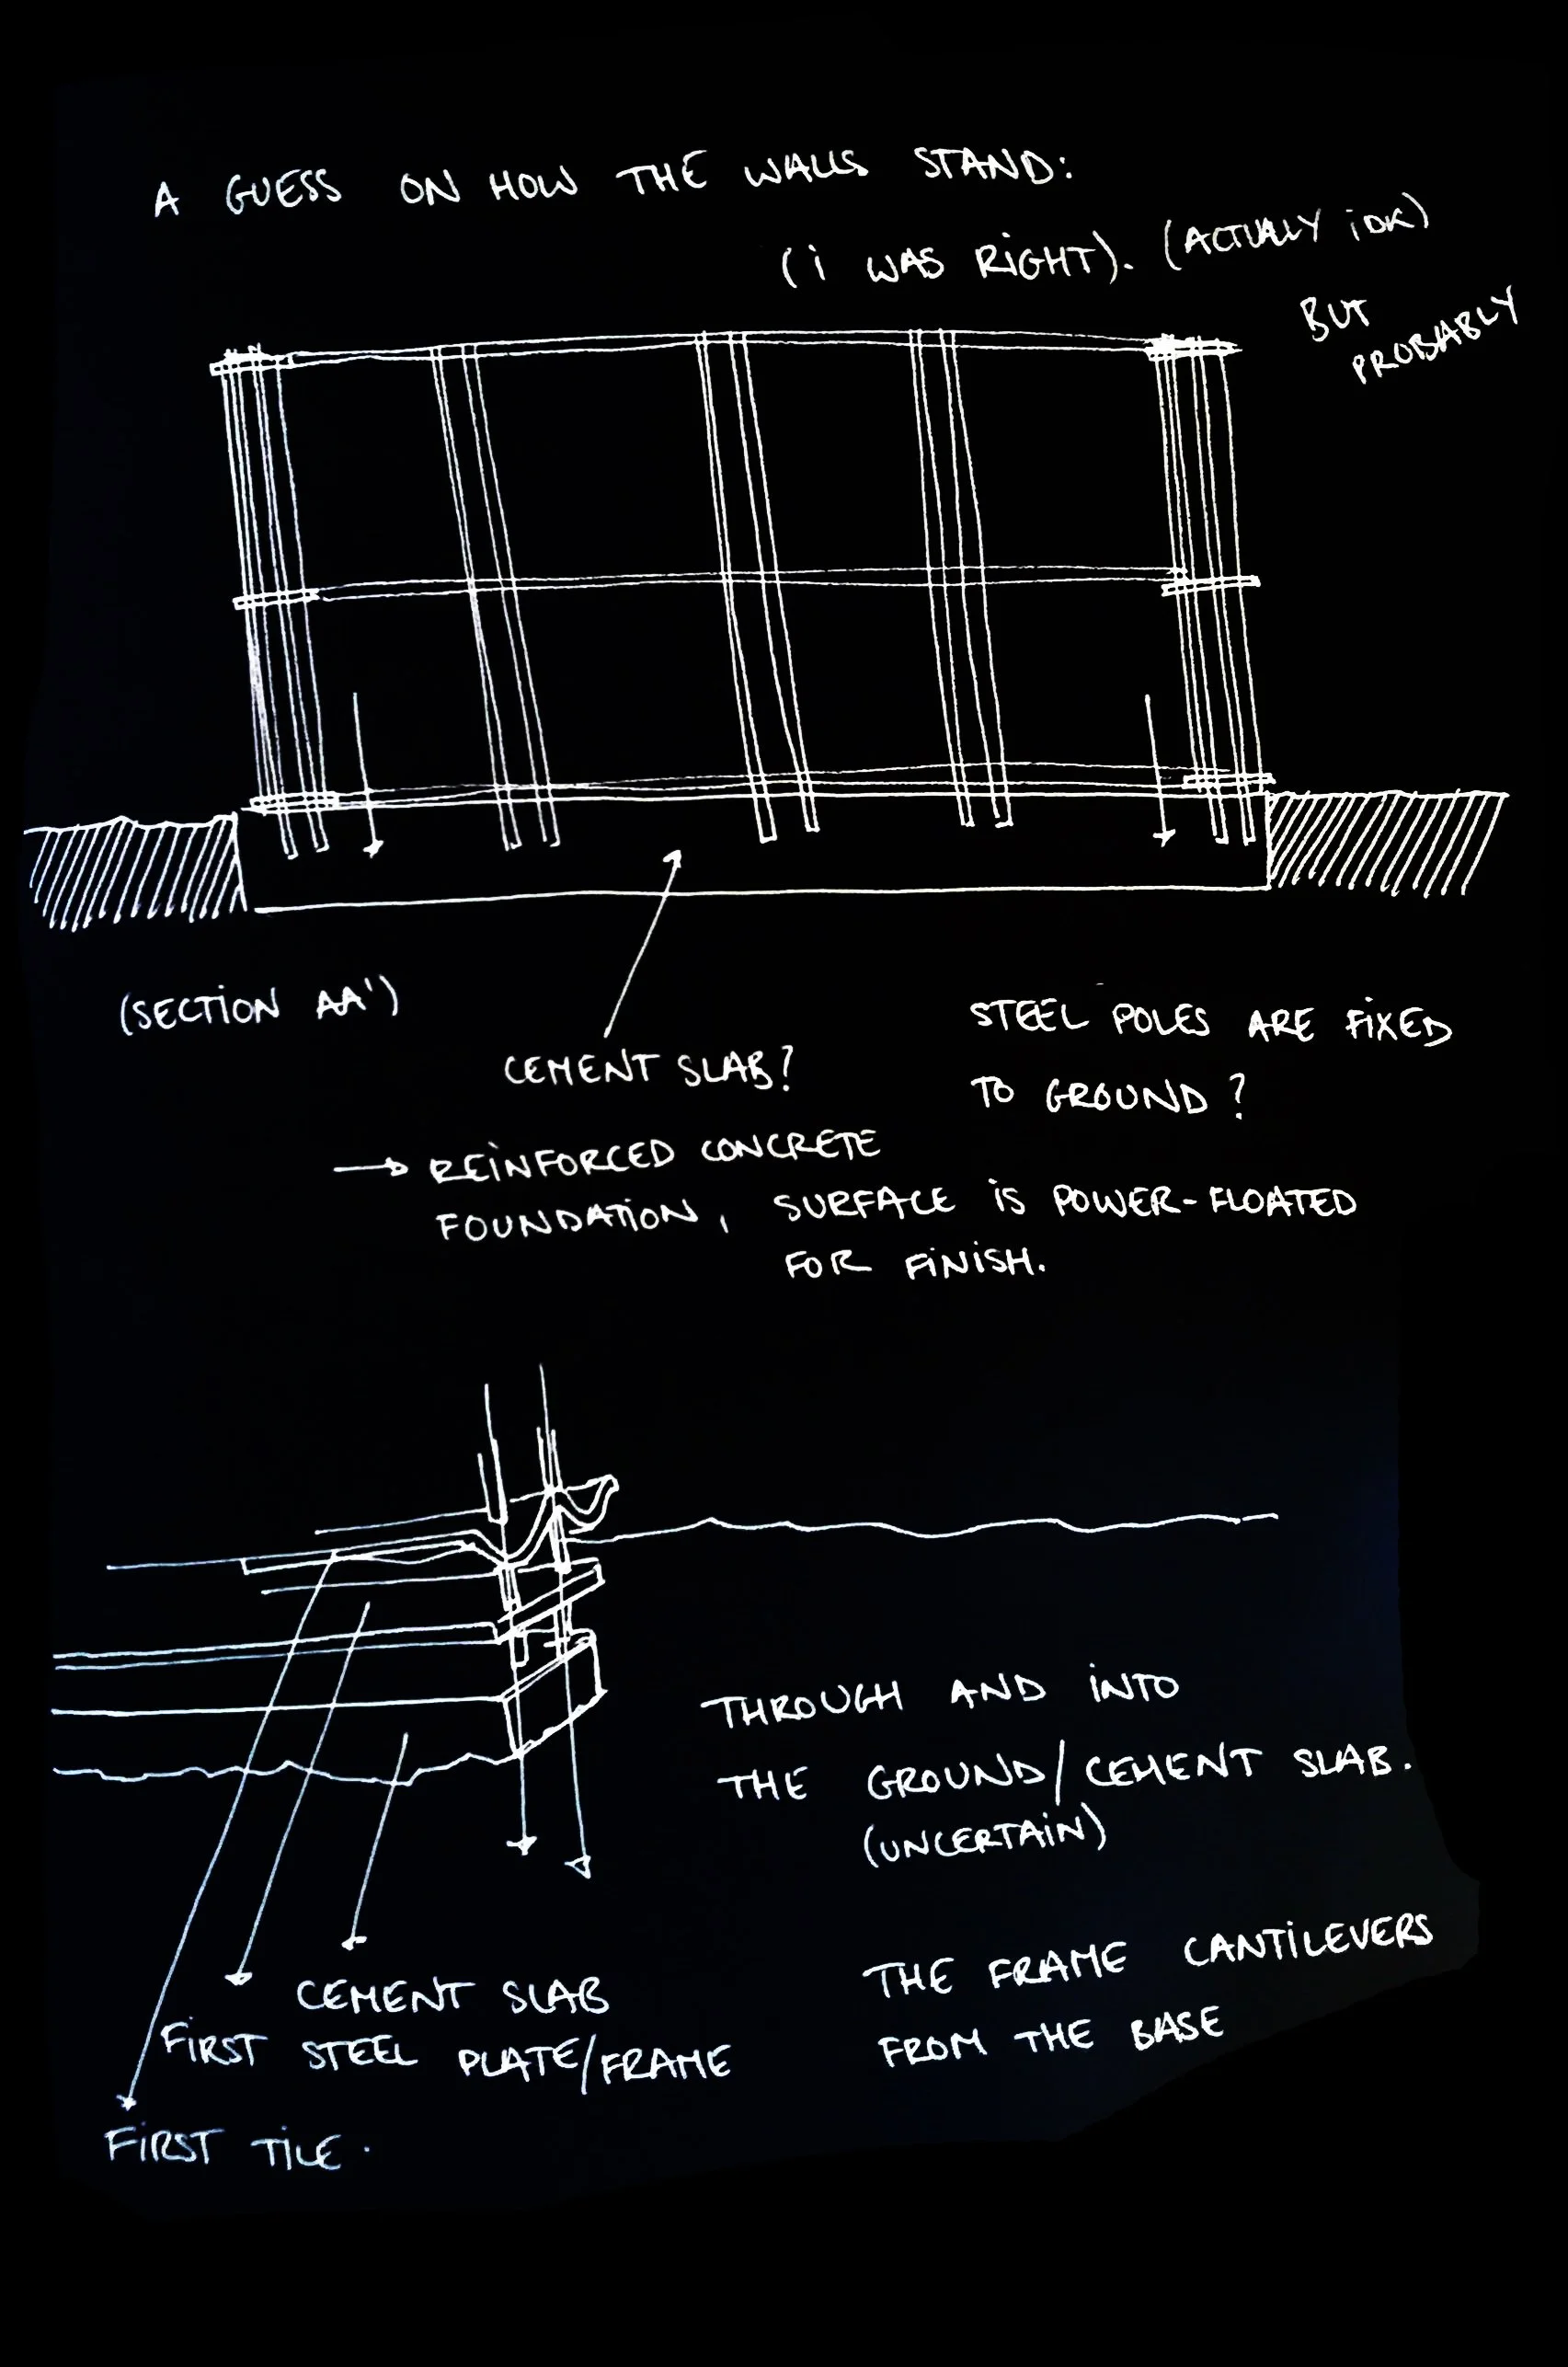 A GUESS ON HOW THE WALLS STAND:
(i WAS RiGHT). (ACTUALLY iDK)
BUT
PROBABLY
(SECTiON AA')
CEMENT SLAB?
STEEL POLES ARE FiXED
TO GROUND?
→ REiNFORCED CONCRETE
FOUNDATiON, SURFACE iS POWER-FLOATED
FOR FiNiSH.
THROUGH AND iNTO
THE GROUND/CEMENT SLAB.
(UNCERTAiN)
THE FRAME CANTiLEVERS
FROM THE BASE
CEMENT SLAB
FiRST STEEL PLATE/FRAME
FiRST TiLE.